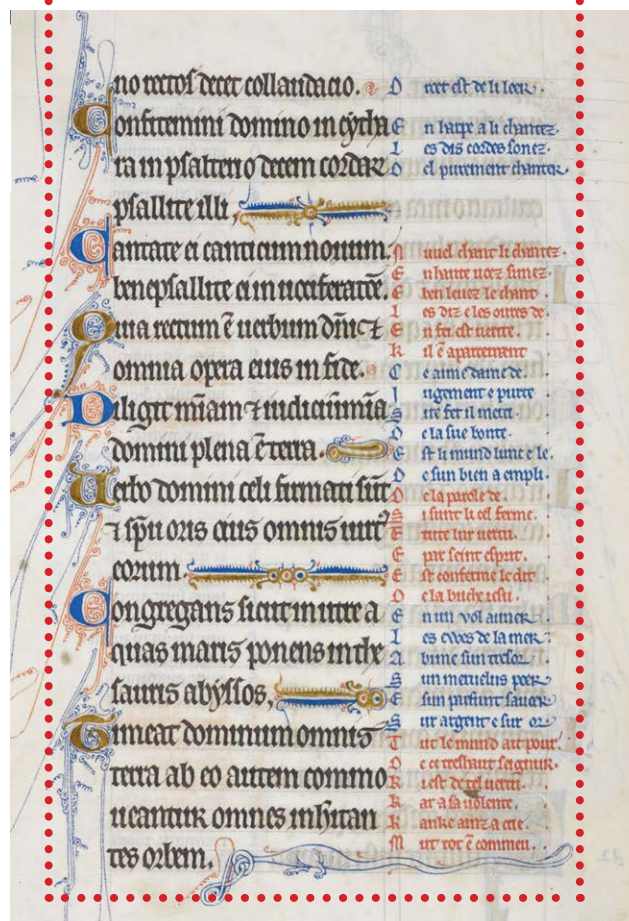 no rectos decet collaudacio.
Confitemini domino in cytha
ra in psalterio decem cordar
psallite illi,
Cantate ei canticum nouum.
bene psallite ei in uociferatōe.
Quia rectum ē uerbum dn̄i ⁊
omnia opera eius in fide.
Diligit mīam ⁊ iudiciū mīa
domini plena ē terra.
Uerbo domini celi firmati sūt
⁊ sp̄u oris eius omnis uirt᾽
eorum.
Congregans sicut in utre a
quas maris ponens in the
sauris abyssos,
Timeat dominum omnis
terra ab eo autem commo
ueantur omnes inhitan
tes orbem.
D reit est de li loer.
E n harpe a li chantez.
L es dis cordes sonez.
D el purement chanter
N uuel chant li chantez.
E n haute uoez sunez.
E ben leuez le chant.
L es diz e les oures de
E n fei est uerite.
K il ē apartenant
C e aime dame de.
I ugement e purte
S ire fet il mett
D e la sue bonte.
E st li mund lunt e le.
D e sun bien a empli.
D e la parole de.
S i sunt li cel ferme.
T ute lur uertu.
E par seint esprit.
E st conferme le dit
D e la buche iesu.
E n un vol
L es ewes de la mer.
A bime sun tresor
S un merueilus poer
E sun parfunt sauer
S ur argent e sur or
T ut le mund
D e ce treshaut seignur.
K i est de tel uertu.
K ar a sa uolente.
K
M ut tot ē commeu.